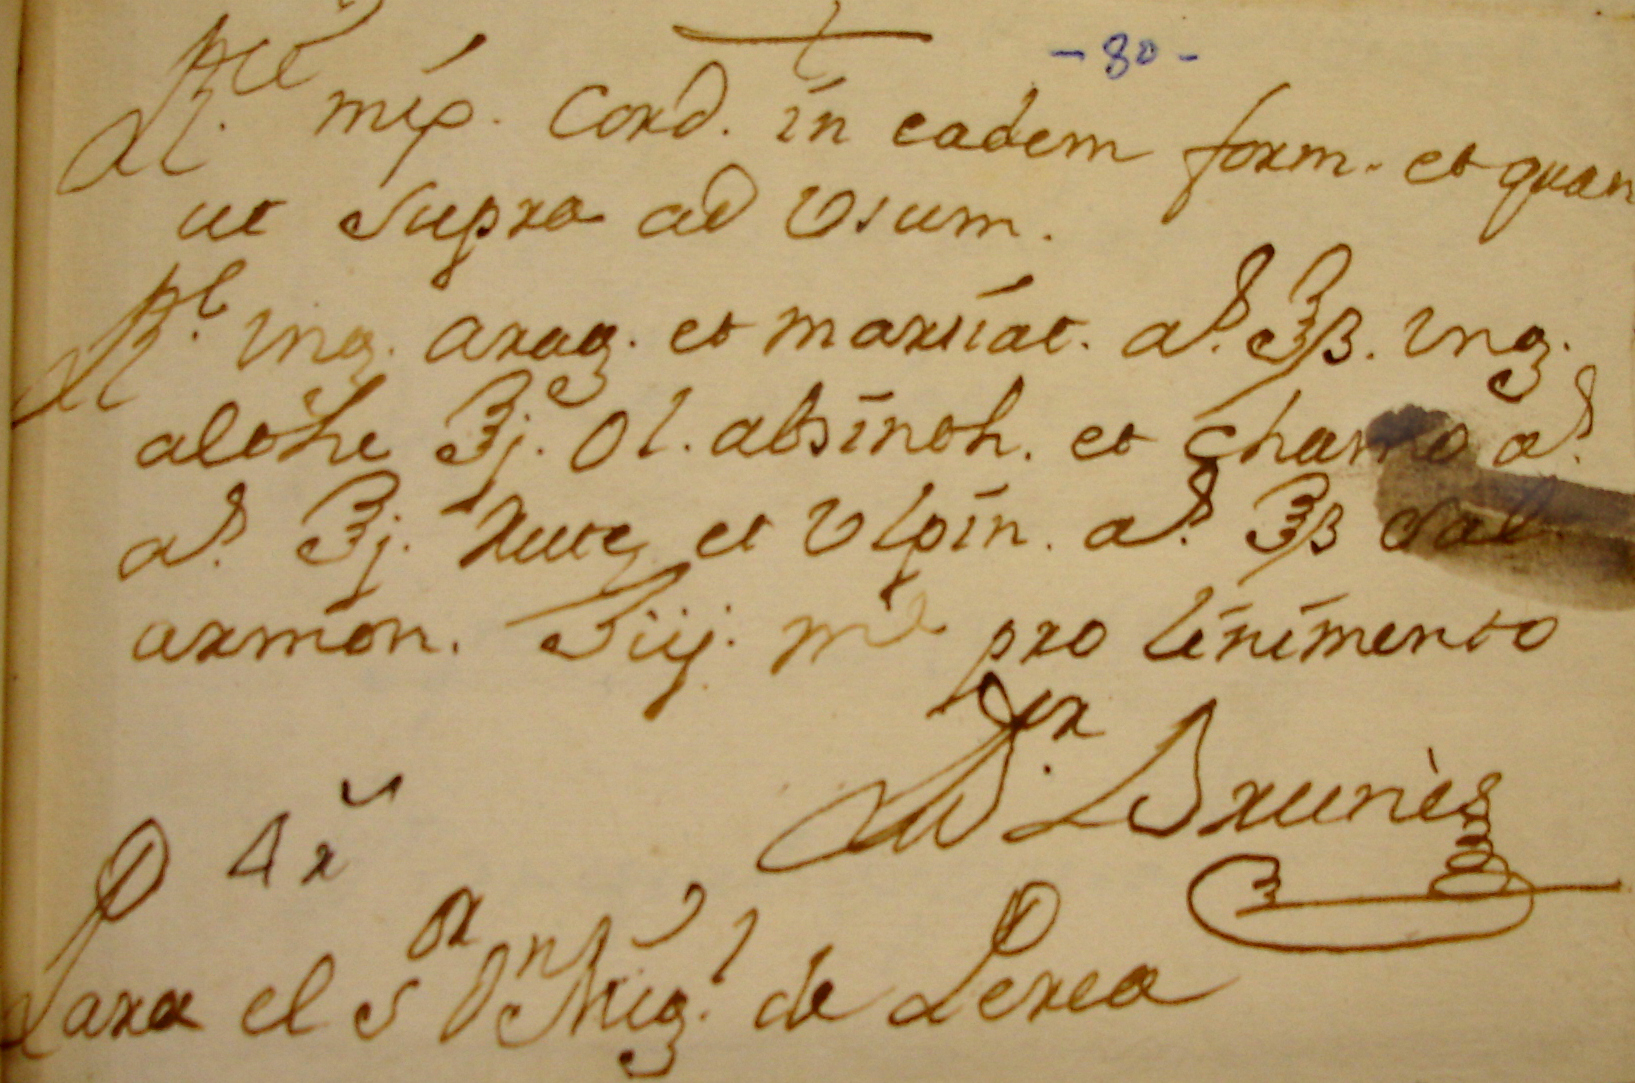 - 80 -
Rce mip. Cord. in eadem form. et quan
ut supra ad Usum.
Rl Ung. arag. et martiat. aa. ℥ß. Ung.
althe ℥j. Ol. absinth. et chamo aa.
aa. ℥j. rute et Vlpin. aa. ℥ß sal
armon. ℈iij. me pro linimento
Dor Brunès
P 4 r
Para el sor Dn Migl de Perea